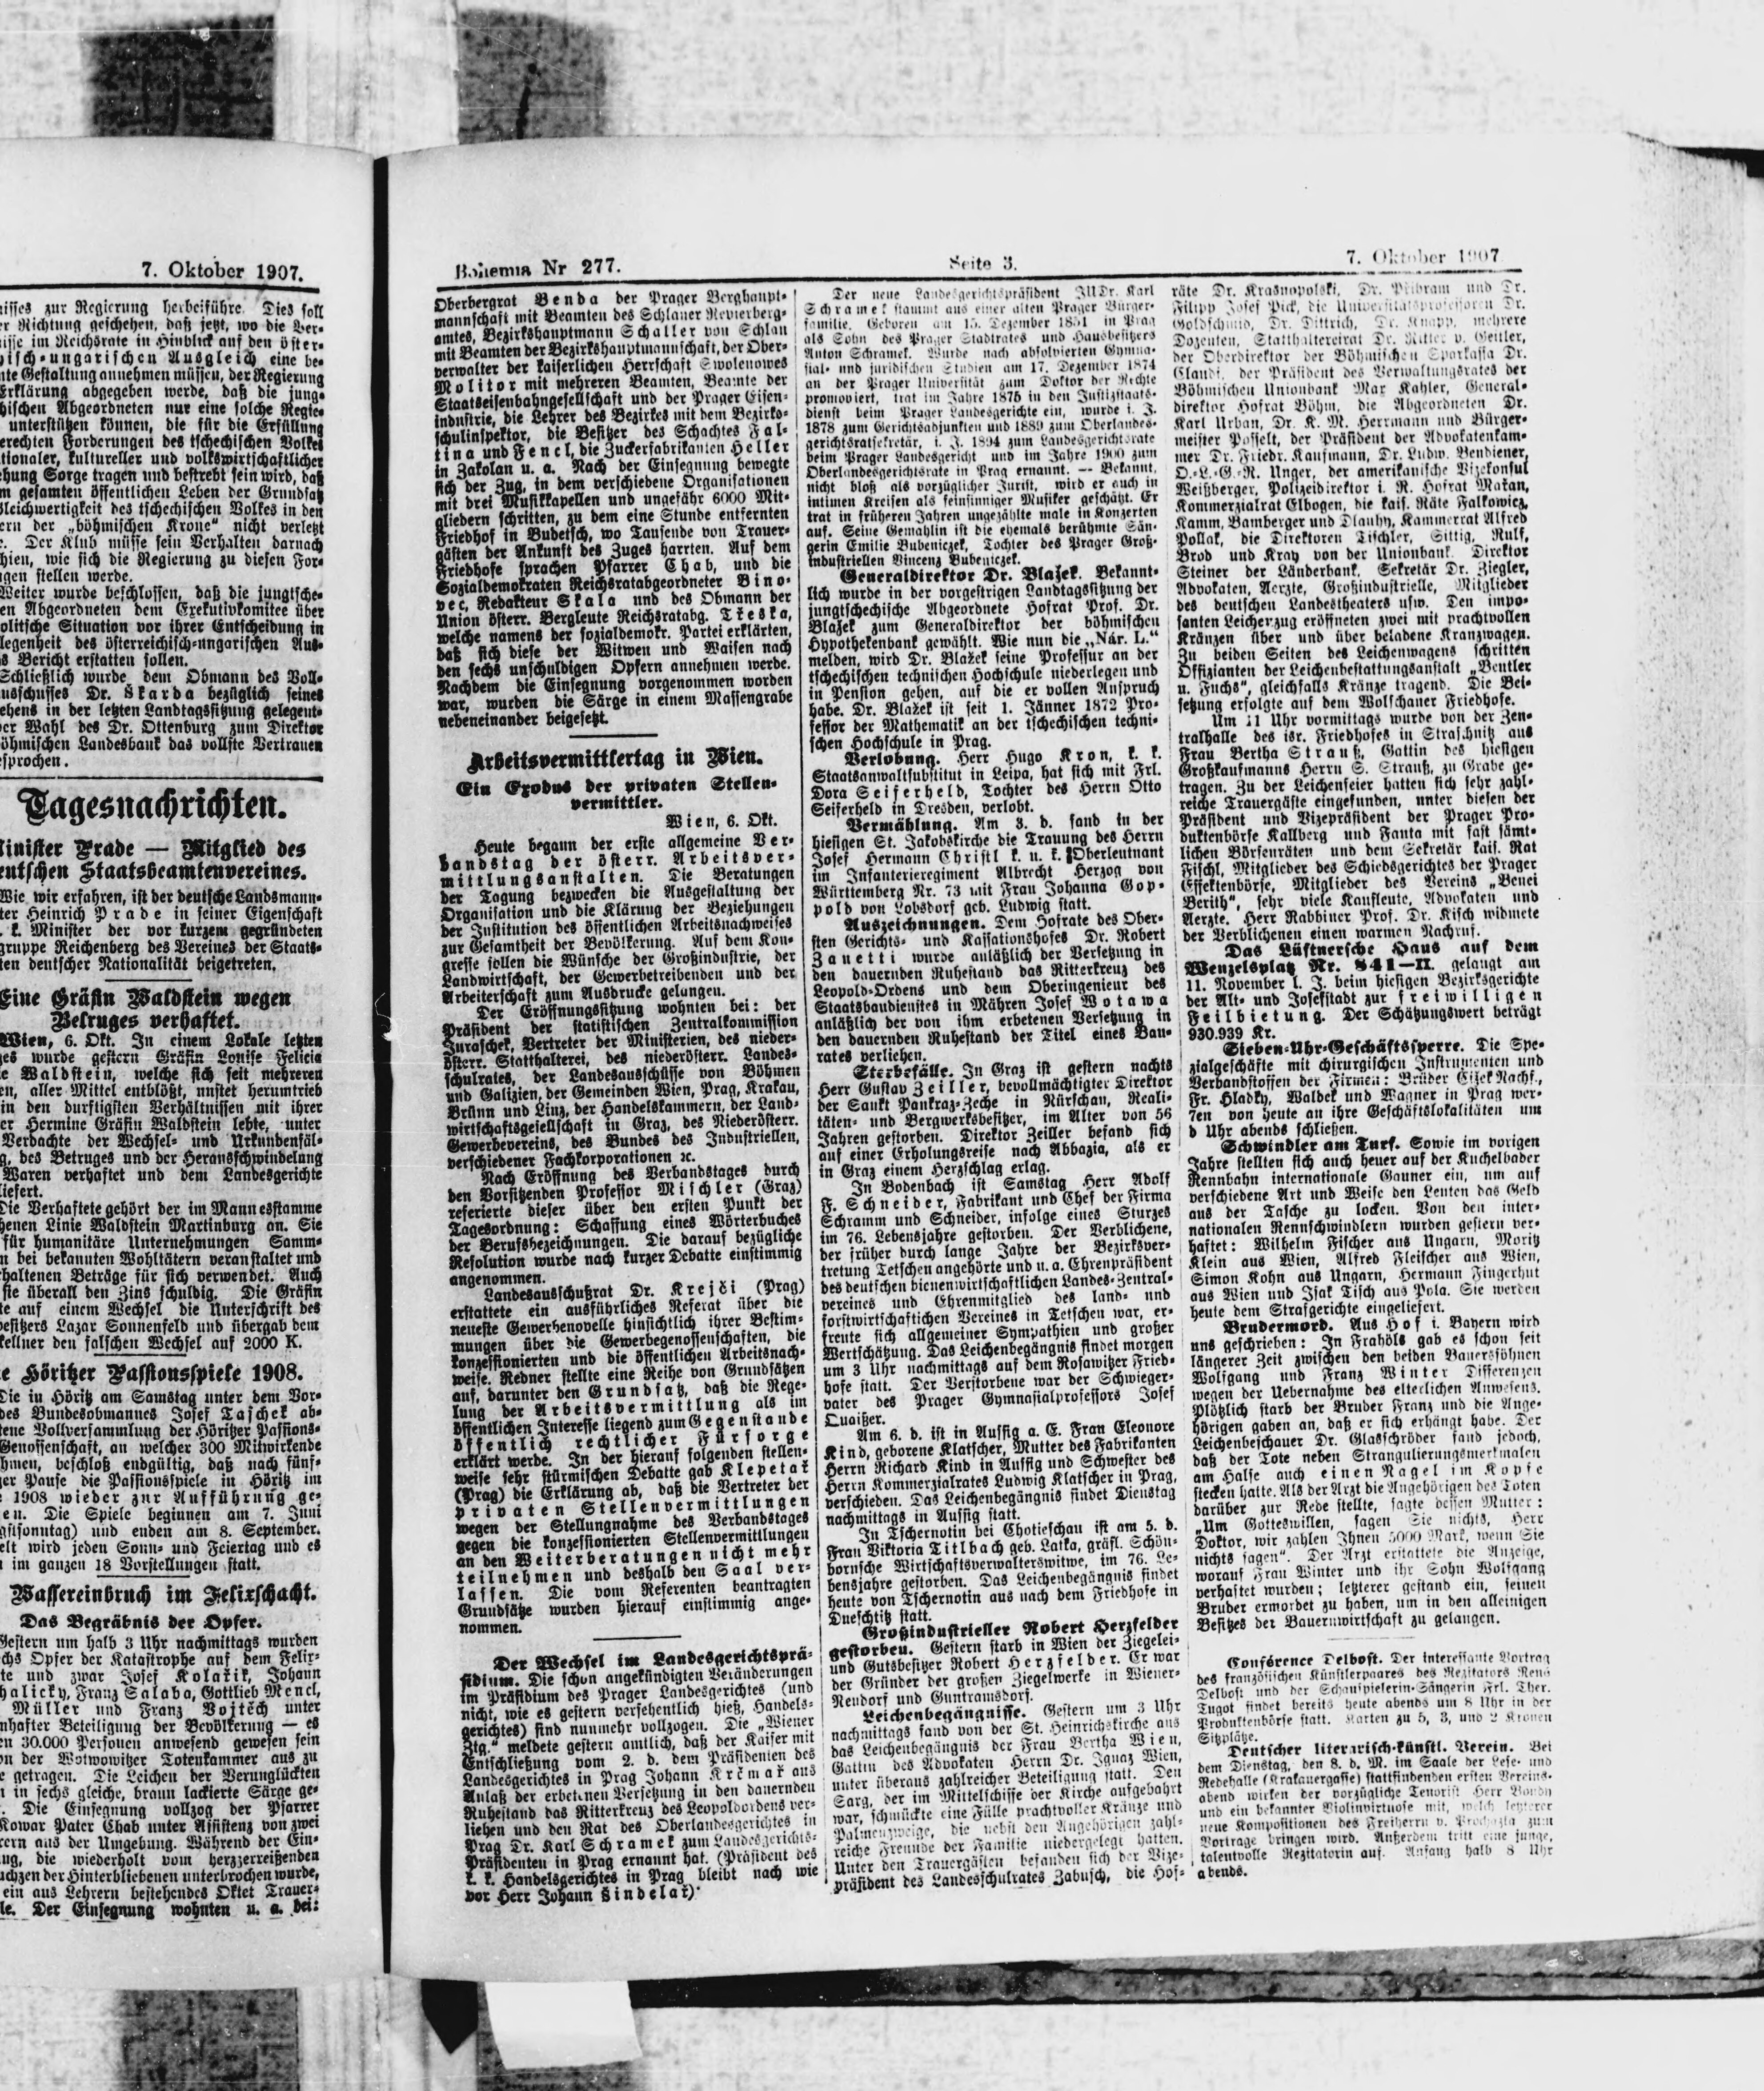 7. Oktober 1907.
isses zur Regierung herbeiführe. Dies soll
er Richtung geschehen, daß jetzt, wo die Ver-
isse im Reichsrate in Hinblick auf den öster-
isch-ungarischen Ausgleich eine be-
te Gestaltung annehmen müssen, der Regierung
Erklärung abgegeben werde, daß die jung-
ischen Abgeordneten nur eine solche Regie-
unterstützen können, die für die Erfüllung
erechten Forderungen des tschechischen Volkes
tionaler, kultureller und volkswirtschaftlicher
hung Sorge tragen und bestrebt sein wird, daß
m gesamten öffentlichen Leben der Grundsatz
Gleichwertigkeit des tschechischen Volkes in den
ern der „böhmischen Krone“ nicht verletzt
e. Der Klub müsse sein Verhalten darnach
hien, wie sich die Regierung zu diesen For-
gen stellen werde.
Weiter wurde beschlossen, daß die jungtsche-
en Abgeordneten dem Exekutivkomitee über
olitsche Situation vor ihrer Entscheidung in
legenheit des österreichisch-ungarischen Aus-
s Bericht erstatten sollen.
Schließlich wurde dem Obmann des Voll-
usschusses Dr. Škarda bezüglich seines
ehens in der letzten Landtagssitzung gelegent-
er Wahl des Dr. Ottenburg zum Direktor
öhmischen Landesbank das vollste Vertrauen
sprochen.
Tagesnachrichten.
inister Prade — Mitglied des
eutschen Staatsbeamtenvereines.
Wie wir erfahren, ist der deutsche Landsmann-
ter Heinrich Prade in seiner Eigenschaft
. k. Minister der vor kurzem gegründeten
gruppe Reichenberg des Vereines der Staats-
ten deutscher Nationalität beigetreten.
Eine Gräfin Waldstein wegen
Betruges verhaftet.
Wien, 6. Okt. In einem Lokale letzten
ges wurde gestern Gräfin Louise Felicia
e Waldstein, welche sich seit mehreren
en, aller Mittel entblößt, unstet herumtrieb
in den durftigsten Verhältnissen mit ihrer
er Hermine Gräfin Waldstein lebte, unter
Verdachte der Wechsel- und Urkundenfäl-
g, des Betruges und der Herausschwindelung
Waren verhaftet und dem Landesgerichte
liefert.
Die Verhaftete gehört der im Mannesstamme
henen Linie Waldstein Martinburg an. Sie
für humanitäre Unternehmungen Samm-
n bei bekannten Wohltätern veranstaltet und
rhaltenen Beträge für sich verwendet. Auch
sie überall den Zins schuldig. Die Gräfin
te auf einem Wechsel die Unterschrift des
besitzers Lazar Sonnenfeld und übergab dem
kellner den falschen Wechsel auf 2000 K.
e Höritzer Passionsspiele 1908.
Die in Höritz am Samstag unter dem Vor-
des Bundesobmannes Josef Taschek ab-
tene Vollversammlung der Höritzer Passions-
Genossenschaft, an welcher 300 Mitwirkende
hmen, beschloß endgültig, daß nach fünf-
ger Pause die Passionsspiele in Höritz im
1908 wieder zur Aufführung ge-
en. Die Spiele beginnen am 7. Juni
gstsonntag) und enden am 8. September.
elt wird jeden Sonn- und Feiertag und es
im ganzen 18 Vorstellungen statt.
Wassereinbruch im Felixschacht.
Das Begräbnis der Opfer.
Gestern um halb 3 Uhr nachmittags wurden
chs Opfer der Katastrophe auf dem Felix-
te und zwar Josef Kolařik, Johann
halicky, Franz Salaba, Gottlieb Mencl,
Müller und Franz Vojtěch unter
nhafter Beteiligung der Bevölkerung — es
en 30.000 Personen anwesend gewesen sein
on der Wotwowitzer Totenkammer aus zu
e getragen. Die Leichen der Verunglückten
n in sechs gleiche, braun lackierte Särge ge-
. Die Einsegnung vollzog der Pfarrer
Kowar Pater Chab unter Assistenz von zwei
rern aus der Umgebung. Während der Ein-
ung, die wiederholt vom herzzerreißenden
uchzen der Hinterbliebenen unterbrochen wurde,
ein aus Lehrern bestehendes Oktet Trauer-
le. Der Einsegnung wohnten u. a. bei:
Bohemia Nr 277.
Seite 3.
7. Oktober 1907
Oberbergrat Benda der Prager Berghaupt-
mannschaft mit Beamten des Schlaner Revierberg-
amtes, Bezirkshauptmann Schaller von Schlan
mit Beamten der Bezirkshauptmannschaft, der Ober-
verwalter der kaiserlichen Herrschaft Swolenowes
Molitor mit mehreren Beamten, Beamte der
Staatseisenbahngesellschaft und der Prager Eisen-
industrie, die Lehrer des Bezirkes mit dem Bezirks-
schulinspektor, die Besitzer des Schachtes Fal-
tina und Fencl, die Zuckerfabrikanten Heller
in Zakolan u. a. Nach der Einsegnung bewegte
sich der Zug, in dem verschiedene Organisationen
mit drei Musikkapellen und ungefähr 6000 Mit-
gliedern schritten, zu dem eine Stunde entfernten
Friedhof in Budetsch, wo Tausende von Trauer-
gästen der Ankunft des Zuges harrten. Auf dem
Friedhofe sprachen Pfarrer Chab, und die
Sozialdemokraten Reichsratabgeordneter Bino-
vec, Redakteur Skala und des Obmann der
Union österr. Bergleute Reichsratabg. Třeska,
welche namens der sozialdemokr. Partei erklärten,
daß sich diese der Witwen und Waisen nach
den sechs unschuldigen Opfern annehmen werde.
Nachdem die Einsegnung vorgenommen worden
war, wurden die Särge in einem Massengrabe
nebeneinander beigesetzt.
Arbeitsvermittlertag in Wien.
Ein Exodus der privaten Stellen-
vermittler.
Wien, 6. Okt.
Heute begann der erste allgemeine Ver-
bandstag der österr. Arbeitsver-
mittlungsanstalten. Die Beratungen
der Tagung bezwecken die Ausgestaltung der
Organisation und die Klärung der Beziehungen
der Institution des öffentlichen Arbeitsnachweises
zur Gesamtheit der Bevölkerung. Auf dem Kon-
gresse sollen die Wünsche der Großindustrie, der
Landwirtschaft, der Gewerbetreibenden und der
Arbeiterschaft zum Ausdrucke gelungen.
Der Eröffnungssitzung wohnten bei: der
Präsident der statistischen Zentralkommission
Juraschek, Vertreter der Ministerien, des nieder-
österr. Statthalterei, des niederösterr. Landes-
schulrates, der Landesausschüsse von Böhmen
und Galizien, der Gemeinden Wien, Prag, Krakau,
Brünn und Linz, der Handelskammern, der Land-
wirtschaftsgesellschaft in Graz, des Niederösterr.
Gewerbevereins, des Bundes des Industriellen,
verschiedener Fachkorporationen ꝛc.
Nach Eröffnung des Verbandstages durch
den Vorsitzenden Professor Mischler (Graz)
referierte dieser über den ersten Punkt der
Tagesordnung: Schaffung eines Wörterbuches
der Berufsbezeichnungen. Die darauf bezügliche
Resolution wurde nach kurzer Debatte einstimmig
angenommen.
Landesausschußrat Dr. Krejči (Prag)
erstattete ein ausführliches Referat über die
neueste Gewerbenovelle hinsichtlich ihrer Bestim-
mungen über die Gewerbegenossenschaften, die
konzessionierten und die öffentlichen Arbeitsnach-
weise. Redner stellte eine Reihe von Grundsätzen
auf, darunter den Grundsatz, daß die Rege-
lung der Arbeitsvermittlung als im
öffentlichen Interesse liegend zum Gegenstande
öffentlich rechtlicher Fürsorge
erklärt werde. In der hierauf folgenden stellen-
weise sehr stürmischen Debatte gab Klepetař
(Prag) die Erklärung ab, daß die Vertreter der
privaten Stellenvermittlungen
wegen der Stellungnahme des Verbandstages
gegen die konzessionierten Stellenvermittlungen
an den Weiterberatungen nicht mehr
teilnehmen und deshalb den Saal ver-
lassen. Die vom Referenten beantragten
Grundsätze wurden hierauf einstimmig ange-
nommen.
Der Wechsel im Landesgerichtsprä-
sidium. Die schon angekündigten Veränderungen
im Präsidium des Prager Landesgerichtes (und
nicht, wie es gestern versehentlich hieß, Handels-
gerichtes) sind nunmehr vollzogen. Die „Wiener
Ztg.“ meldete gestern amtlich, daß der Kaiser mit
Entschließung vom 2. d. dem Präsidenten des
Landesgerichtes in Prag Johann Krčmař aus
Anlaß der erbetenen Versetzung in den dauernden
Ruhestand das Ritterkreuz des Leopoldordens ver-
liehen und den Rat des Oberlandesgerichtes in
Prag Dr. Karl Schramek zum Landesgerichts-
Präsidenten in Prag ernannt hat. (Präsident des
k. k. Handelsgerichtes in Prag bleibt nach wie
vor Herr Johann Šindelař).
Der neue Landesgerichtspräsident JUDr. Karl
Schramek stammt aus einer alten Prager Bürger-
familie. Geboren am 15. Dezember 1851 in Prag
als Sohn des Prager Stadtrates und Hausbesitzers
Anton Schramek. Wurde nach absolvierten Gymna-
sial- und juridischen Studien am 17. Dezember 1874
an der Prager Universität zum Doktor der Rechte
promoviert, trat im Jahre 1875 in den Justizstaats-
dienst beim Prager Landesgerichte ein, wurde i. J.
1878 zum Gerichtsadjunkten und 1889 zum Oberlandes-
gerichtsratsekretär, i. J. 1894 zum Landesgerichtsrate
beim Prager Landesgericht und im Jahre 1900 zum
Oberlandesgerichtsrate in Prag ernannt. — Bekannt,
nicht bloß als vorzüglicher Jurist, wird er auch in
intimen Kreisen als feinsinniger Musiker geschätzt. Er
trat in früheren Jahren ungezählte male in Konzerten
auf. Seine Gemahlin ist die ehemals berühmte Sän-
gerin Emilie Bubeniczek, Tochter des Prager Groß-
industriellen Vincenz Bubeniczek.
Generaldirektor Dr. Blažek. Bekannt-
lich wurde in der vorgestrigen Landtagssitzung der
jungtschechische Abgeordnete Hofrat Prof. Dr.
Blažek zum Generaldirektor der böhmischen
Hypothekenbank gewählt. Wie nun die „Nár. L.“
melden, wird Dr. Blažek seine Professur an der
tschechischen technischen Hochschule niederlegen und
in Pension gehen, auf die er vollen Anspruch
habe. Dr. Blažek ist seit 1. Jänner 1872 Pro-
fessor der Mathematik an der tschechischen techni-
schen Hochschule in Prag.
Verlobung. Herr Hugo Kron, k. k.
Staatsanwaltsubstitut in Leipa, hat sich mit Frl.
Dora Seiferheld, Tochter des Herrn Otto
Seiferheld in Dresden, verlobt.
Vermählung. Am 3. d. fand in der
hiesigen St. Jakobskirche die Trauung des Herrn
Josef Hermann Christl k. u. k. Oberleutnant
im Infanterieregiment Albrecht Herzog von
Württemberg Nr. 73 mit Frau Johanna Gop-
pold von Lobsdorf geb. Ludwig statt.
Auszeichnungen. Dem Hofrate des Ober-
sten Gerichts- und Kassationshofes Dr. Robert
Zanetti wurde anläßlich der Versetzung in
den dauernden Ruhestand das Ritterkreuz des
Leopold-Ordens und dem Oberingenieur des
Staatsbaudienstes in Mähren Josef Wotawa
anläßlich der von ihm erbetenen Versetzung in
den dauernden Ruhestand der Titel eines Bau-
rates verliehen.
Sterbefälle. In Graz ist gestern nachts
Herr Gustav Zeiller, bevollmächtigter Direktor
der Sankt Pankraz-Zeche in Nürschau, Reali-
täten- und Bergwerksbesitzer, im Alter von 56
Jahren gestorben. Direktor Zeiller befand sich
auf einer Erholungsreise nach Abbazia, als er
in Graz einem Herzschlag erlag.
In Bodenbach ist Samstag Herr Adolf
F. Schneider, Fabrikant und Chef der Firma
Schramm und Schneider, infolge eines Sturzes
im 76. Lebensjahre gestorben. Der Verblichene,
der früher durch lange Jahre der Bezirksver-
tretung Tetschen angehörte und u. a. Ehrenpräsident
des deutschen bienenwirtschaftlichen Landes-Zentral-
vereines und Ehrenmitglied des land- und
forstwirtschaftichen Vereines in Tetschen war, er-
freute sich allgemeiner Sympathien und großer
Wertschätzung. Das Leichenbegängnis findet morgen
um 3 Uhr nachmittags auf dem Rosawitzer Fried-
hofe statt. Der Verstorbene war der Schwieger-
vater des Prager Gymnasialprofessors Josef
Quaißer.
Am 6. d. ist in Aussig a. E. Frau Eleonore
Kind, geborene Klatscher, Mutter des Fabrikanten
Herrn Richard Kind in Aussig und Schwester des
Herrn Kommerzialrates Ludwig Klatscher in Prag,
verschieden. Das Leichenbegängnis findet Dienstag
nachmittags in Aussig statt.
In Tschernotin bei Chotieschau ist am 5. d.
Frau Viktoria Titlbach geb. Latka, gräfl. Schön-
bornsche Wirtschaftsverwalterswitwe, im 76. Le-
bensjahre gestorben. Das Leichenbegängnis findet
heute von Tschernotin aus nach dem Friedhofe in
Dueschtitz statt.
Großindustrieller Robert Herzfelder
gestorben. Gestern starb in Wien der Ziegelei-
und Gutsbesitzer Robert Herzfelder. Er war
der Gründer der großen Ziegelwerke in Wiener-
Neudorf und Guntramsdorf.
Leichenbegängnisse. Gestern um 3 Uhr
nachmittags fand von der St. Heinrichskirche aus
das Leichenbegängnis der Frau Bertha Wien,
Gattin des Advokaten Herrn Dr. Ignaz Wien,
unter überaus zahlreicher Beteiligung statt. Den
Sarg, der im Mittelschiffe der Kirche aufgebahrt
war, schmückte eine Fülle prachtvoller Kränze und
Palmenzweige, die nebst den Angehörigen zahl-
reiche Freunde der Familie niedergelegt hatten.
Unter den Trauergästen befanden sich der Vize-
präsident des Landesschulrates Zabusch, die Hof-
räte Dr. Krasnopolski, Dr. Přibram und Dr.
Filipp Josef Pick, die Universitätsprofessoren Dr.
Goldschmid, Dr. Dittrich, Dr. Knapp, mehrere
Dozenten, Statthaltereirat Dr. Ritter v. Geitler,
der Oberdirektor der Böhmischen Sparkassa Dr.
Claudi, der Präsident des Verwaltungsrates der
Böhmischen Unionbank Max Kahler, General-
direktor Hofrat Böhm, die Abgeordneten Dr.
Karl Urban, Dr. K. M. Herrmann und Bürger-
meister Posselt, der Präsident der Advokatenkam-
mer Dr. Friedr. Kaufmann, Dr. Ludw. Bendiener,
O.-L.-G.-R. Unger, der amerikanische Vizekonsul
Weißberger, Polizeidirektor i. R. Hofrat Makan,
Kommerzialrat Elbogen, die kais. Räte Falkowicz,
Kamm, Bamberger und Dlauhy, Kammerrat Alfred
Pollak, die Direktoren Tischler, Sittig, Rulf,
Brod und Kray von der Unionbank. Direktor
Steiner der Länderbank, Sekretär Dr. Ziegler,
Advokaten, Aerzte, Großindustrielle, Mitglieder
des deutschen Landestheaters usw. Den impo-
santen Leichenzug eröffneten zwei mit prachtvollen
Kränzen über und über beladene Kranzwagen.
Zu beiden Seiten des Leichenwagens schritten
Offizianten der Leichenbestattungsanstalt „Beutler
u. Fuchs“, gleichfalls Kränze tragend. Die Bei-
setzung erfolgte auf dem Wolschaner Friedhofe.
Um 11 Uhr vormittags wurde von der Zen-
tralhalle des isr. Friedhofes in Straschnitz aus
Frau Bertha Strauß, Gattin des hiesigen
Großkaufmanns Herrn S. Strauß, zu Grabe ge-
tragen. Zu der Leichenfeier hatten sich sehr zahl-
reiche Trauergäste eingefunden, unter diesen der
Präsident und Vizepräsident der Prager Pro-
duktenbörse Kallberg und Fanta mit fast sämt-
lichen Börsenräten und dem Sekretär kais. Rat
Fischl, Mitglieder des Schiedsgerichtes der Prager
Effektenbörse, Mitglieder des Vereins „Benei
Berith“, sehr viele Kaufleute, Advokaten und
Aerzte. Herr Rabbiner Prof. Dr. Kisch widmete
der Verblichenen einen warmen Nachruf.
Das Lüftnersche Haus auf dem
Wenzelsplatz Nr. 841—II. gelangt am
11. November l. J. beim hiesigen Bezirksgerichte
der Alt- und Josefstadt zur freiwilligen
Feilbietung. Der Schätzungswert beträgt
930.939 Kr.
Sieben-Uhr-Geschäftssperre. Die Spe-
zialgeschäfte mit chirurgischen Instrumenten und
Verbandstoffen der Firmen: Brüder Cižek Nachf.,
Fr. Hladky, Waldek und Wagner in Prag wer-
7en von heute an ihre Geschäftslokalitäten um
d Uhr abends schließen.
Schwindler am Turf. Sowie im vorigen
Jahre stellten sich auch heuer auf der Kuchelbader
Rennbahn internationale Gauner ein, um auf
verschiedene Art und Weise den Leuten das Geld
aus der Tasche zu locken. Von den inter-
nationalen Rennschwindlern wurden gestern ver-
haftet: Wilhelm Fischer aus Ungarn, Moritz
Klein aus Wien, Alfred Fleischer aus Wien,
Simon Kohn aus Ungarn, Hermann Fingerhut
aus Wien und Isak Tisch aus Pola. Sie werden
heute dem Strafgerichte eingeliefert.
Brudermord. Aus Hof i. Bayern wird
uns geschrieben: In Frahöls gab es schon seit
längerer Zeit zwischen den beiden Bauersöhnen
Wolfgang und Franz Winter Differenzen
wegen der Uebernahme des elterlichen Anwesens.
Plötzlich starb der Bruder Franz und die Ange-
hörigen gaben an, daß er sich erhängt habe. Der
Leichenbeschauer Dr. Glasschröder fand jedoch,
daß der Tote neben Strangulierungsmerkmalen
am Halse auch einen Nagel im Kopfe
stecken hatte. Als der Arzt die Angehörigen des Toten
darüber zur Rede stellte, sagte dessen Mutter:
„Um Gotteswillen, sagen Sie nichts, Herr
Doktor, wir zahlen Ihnen 5000 Mark, wenn Sie
nichts sagen“. Der Arzt erstattete die Anzeige,
worauf Frau Winter und ihr Sohn Wolfgang
verhaftet wurden; letzterer gestand ein, seinen
Bruder ermordet zu haben, um in den alleinigen
Besitzes der Bauernwirtschaft zu gelangen.
Conférence Delbost. Der interessante Vortrag
des französischen Künstlerpaares des Rezitators René
Delbost und der Schauspielerin-Sängerin Frl. Ther.
Tugot findet bereits heute abends um 8 Uhr in der
Produktenbörse statt. Karten zu 5, 3, und 2 Kronen
Sitzplätze.
Deutscher literarisch-künstl. Verein. Bei
dem Dienstag, den 8. d. M. im Saale der Lese- und
Redehalle (Krakauergasse) stattfindenden ersten Vereins-
abend wirken der vorzügliche Tenorist Herr Bondy
und ein bekannter Violinvirtuose mit, welch letzterer
neue Kompositionen des Freiherrn v. Prochazka zum
Vortrage bringen wird. Außerdem tritt eine junge,
talentvolle Rezitatorin auf. Anfang halb 8 Uhr
abends.